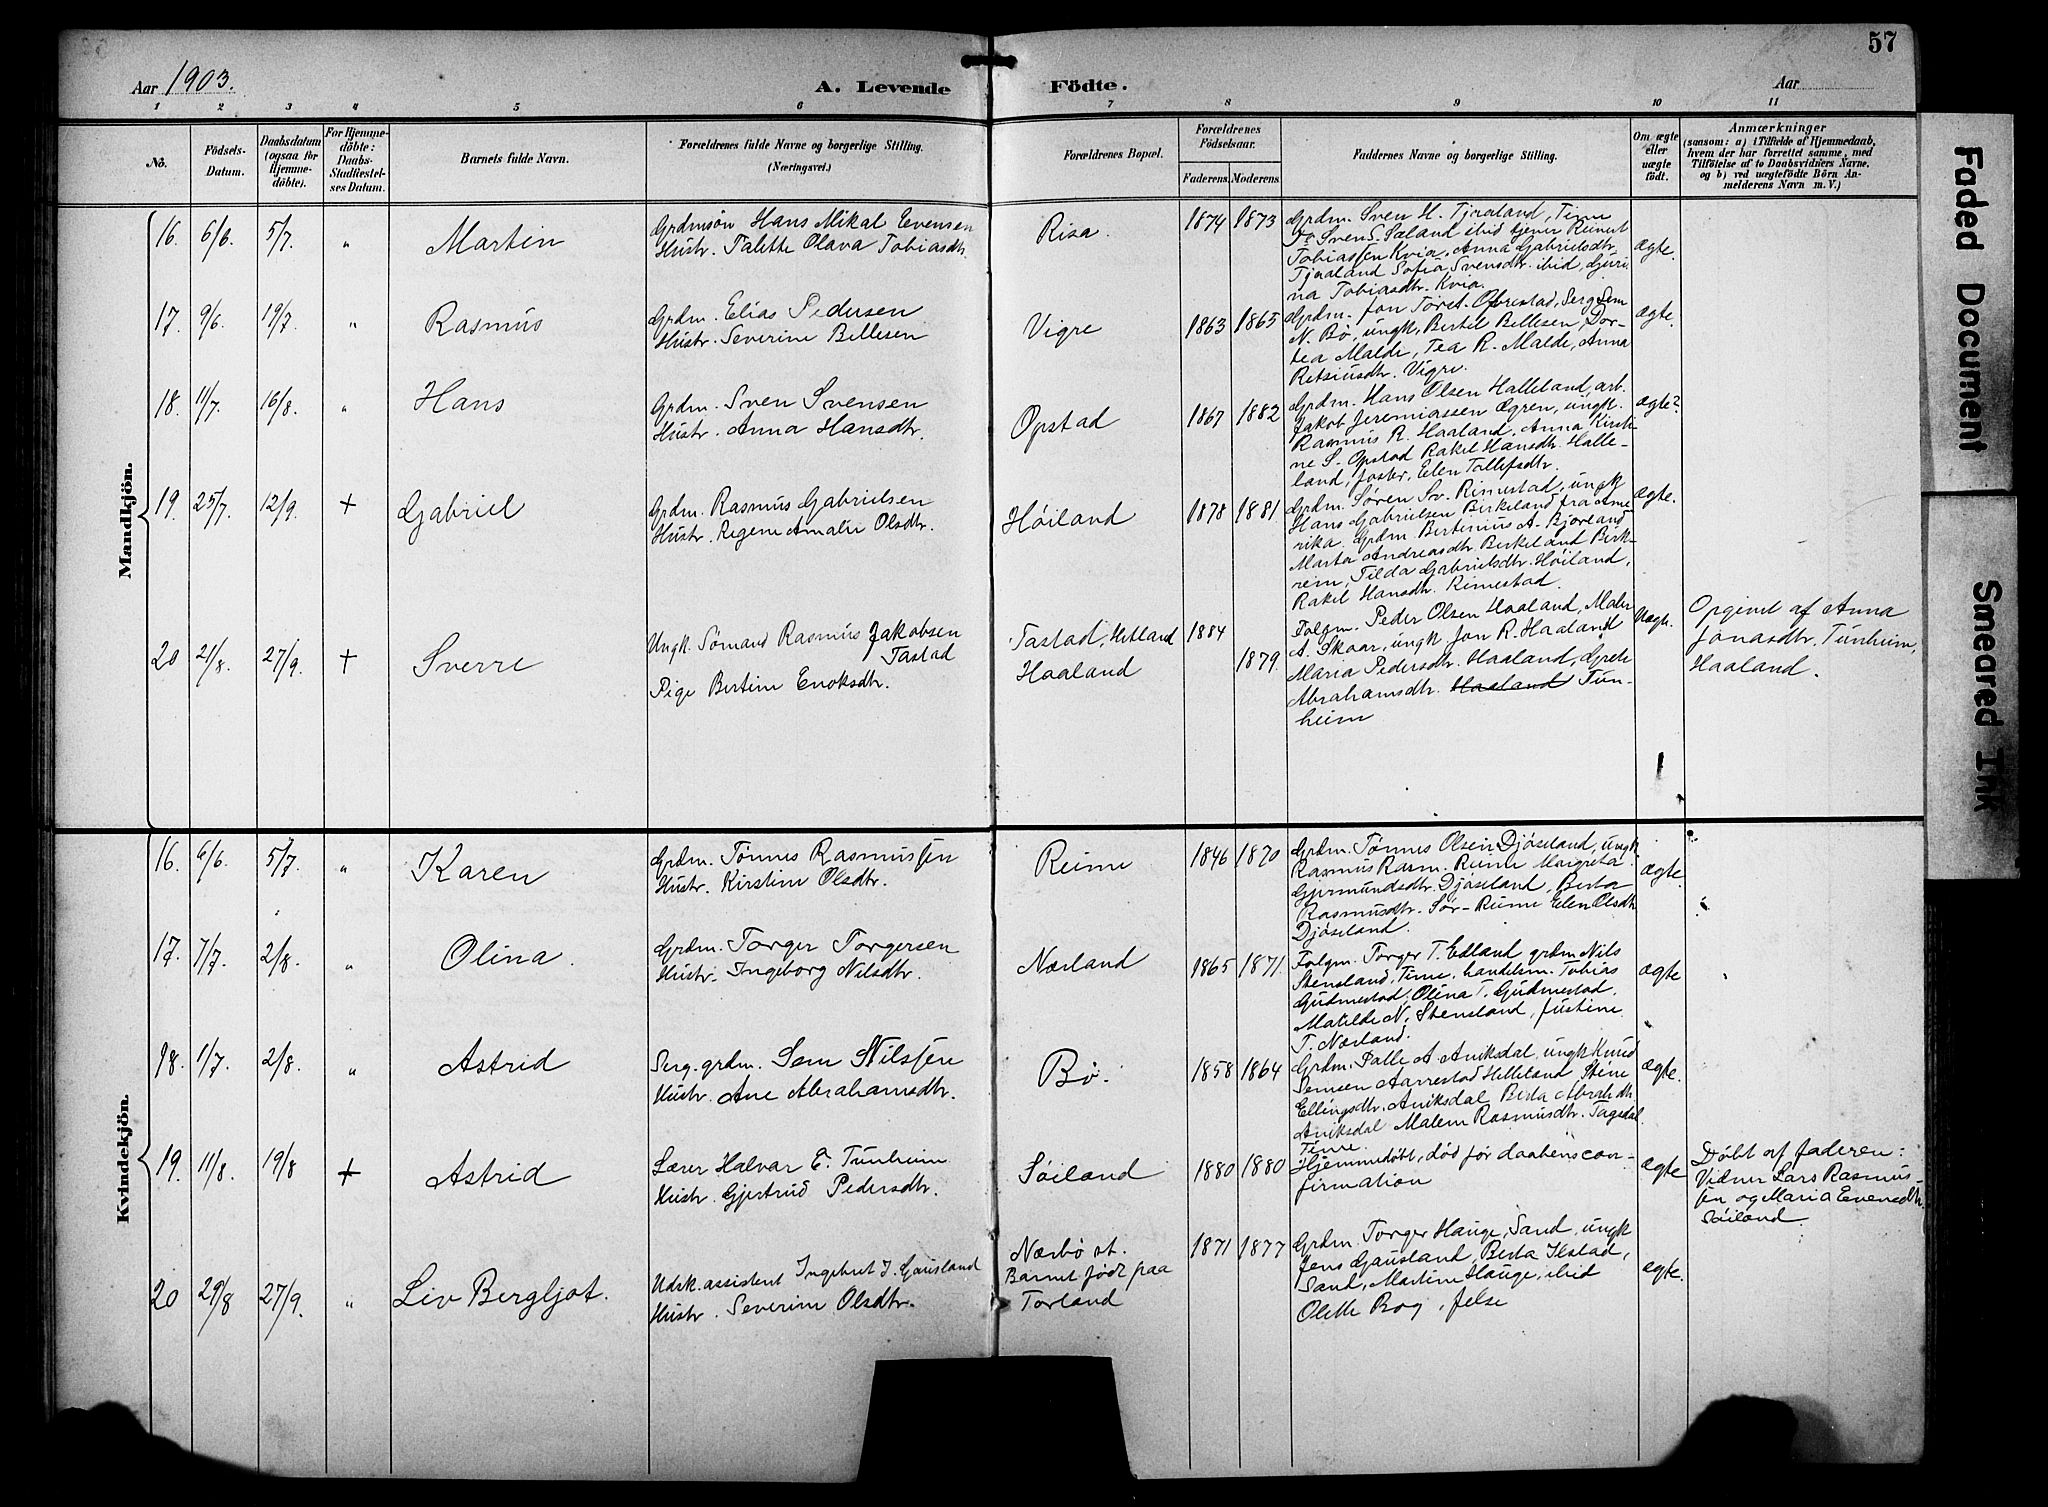 57
Aar 1903.
A. Levende Födte.
Aar
1 2 3 4 5 6 7 8 9 10 11
No.
Födsels-Datum.
Daabsdatum (ogsaa for Hjemme-döbte).
For Hjemme-döbte: Daabs-Stadfæstel-ses Datum.
Barnets fulde Navn.
Forældrenes fulde Navne og borgerlige Stilling.
(Næringsvei.)
Forældrenes Bopæl.
Forældrenes Födselsaar.
Faderens. Moderens.
Faddernes Navne og borgerlige Stilling.
Om ægte eller uægte födt.
Anmærkninger
(saasom: a) i Tilfælde af Hjemmedaab,
hvem der har forrettet samme, med
Tilföielse af to Daabsvidners Navne,
og b) ved uægtefödte Börn An-
melderens Navn m. V.)
Mandkjön.
16. 6/6. 5/7. " Martin
Grdmsøn Hans Mikal Evensen
Hustr. Talette Olava Tobiasdtr.
Risa.
1874 1873
Grdm. Sven H. Tjaaland, Time
Sven S. Sæland ibid tjener Reinert
Tobiassen Kvia, Anna Gabrielsdtr.
Tjaaland Sofia Svensdtr. ibid, Guri-
na Tobiasdtr. Kvia.
Ægte.
17. 9/6. 19/7. " Rasmus
Grdm. Elias Pedersen
Hustr. Severine Bellesen
Vigre
1863 1865
Grdm. Jon Torst. Obrestad, Serg Sem
N. Bø, ungk. Bertil Bellesen, Dor-
tea Malde, Tea R. Malde, Anna
Retsiusdtr. Vigre.
Ægte.
18. 11/7. 16/8. " Hans
Grdm. Sven Svensen
Hustr. Anna Hansdtr.
Opstad
1867 1882
Grdm. Hans Olsen Halleland, arb.
Jakob Jeremiassen Ogren, ungk.
Rasmus R. Haaland, Anna Kirsti-
ne S. Opstad Rakel Hansdtr. Halle-
land, Elen Tollefsdtr.
Ægte?
19. 25/7. 12/9. + Gabriel
Grdm. Rasmus Gabrielsen
Hustr. Regene Amalie Olsdtr.
Høiland
1878 1881
Grdm. Søren Sv. Rimestad, ungk
Hans Gabrielsen Birkeland fra Ame-
rika. Grdm. Bertinius A. Bjorland
Marta Andreasdtr. Birkeland Birk-
rem, Tilda Gabrielsdtr. Høiland,
Rakel Hansdtr. Rimestad.
ægte.
20 21/8. 27/9. + Sverre
Ungk. Sømand Rasmus Jakobsen
Tastad
Pige Bertine Enoksdtr.
Tastad, Hetland
Haaland
1884
1879.
Folgm. Peder Olsen Haaland, Maler
A. Skaar, ungk Jon R. Haaland
Maria Pedersdtr. Haaland, Grete
Abrahamsdtr. Haaland Tun-
heim
Uægte.
Opgivet af Anna
Jonasdtr. Tunheim,
Haaland.
Kvindekjön.
16. 6/6. 5/7. " Karen
Grdm. Tønnes Rasmussen
Hustr. Kirstine Olsdtr.
Reime
1846 1870
Grdm. Tønnes Olsen Djøseland, ungk
Rasmus Rasm. Reime Margreta
Gjermundsdtr. Djøseland, Berta
Rasmusdtr. Sør-Reime Elen Olsdtr
Djøseland.
Ægte.
17. 7/7. 2/8. " Olina.
Grdm. Torger Torgersen
Hustr. Ingeborg Nilsdtr.
Nærland
1865 1871.
Folgm. Torger T. Edland grdm Nils
Stensland, Time, handelsm. Tobias
Gudmestad, Olina T. Gudmestad,
Matilde N. Stensland, Justine
T. Nærland.
Ægte
18. 1/7. 2/8. " Astrid
Serg. grdm. Sem Nilssen
Hustr. Ane Abrahamsdtr.
Bø.
1858 1864
Grdm. Palle A Aniksdal, ungk Knud
Semsen Aarrestad Helleland Stine
Ellingsdtr. Aniksdal Berta Abrah.dtr.
Aniksdal Malene Rasmusdtr. Tagedal
Time.
Ægte.
19. 11/8. 19/8 + Astrid
Lærer Halvar E. Tunheim
Hustr. Gjertrud Pedersdtr.
Søiland
1880 1880
Hjemmedøbt, død før daabens con-
firmation
ægte
Døbt af faderen:
Vidner Lars Rasmus-
sen og Maria Evensdtr.
Søiland
20 29/8 27/9. " Liv Bergljot.
Udsk.assistent Ingebret J. Gausland
Hustr. Severine Olsdtr.
Nærbø st.
Barnet født paa
Torland
1871 1877
Grdm. Torger Hauge, Sand, ungk
Jens Gausland, Berta Ilstad,
Sand, Martine Hauge, ibid
Olette Bog, Jelse
ægte.
Faded Document
Smeared Ink